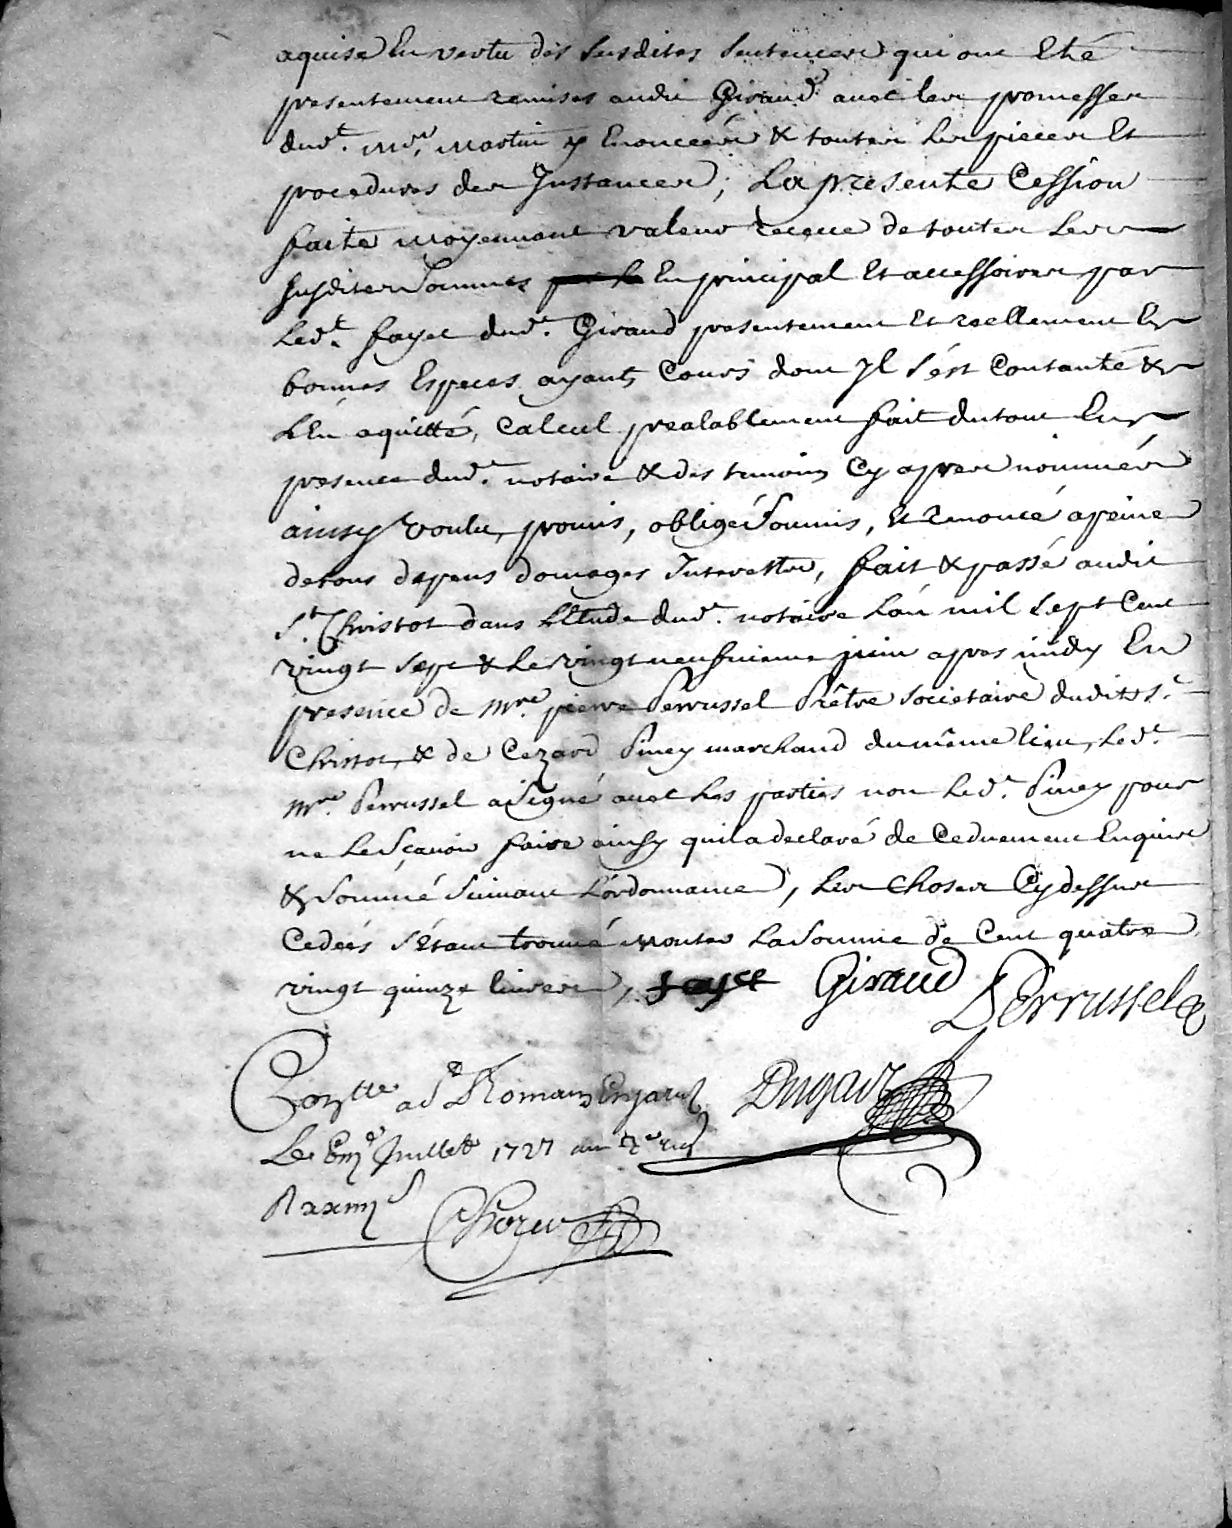 aquise En vertu des susdites sentences qui ont Eté
presentement remises audit Giraud avec les promesses
dud.t M.re Martin y Enonceés & toutes les pieces Et
procedures des Instances, La presente Cession
faite moyennant valeur receue de toutes Les
susdites sommes En principal Et accessoires par
Led.t fayet dud.t Giraud presentement Et reellement En
bonnes Especes ayants Cours dont Il s'ést Contanté &
L'En aquitté, Calcul prealablement fait du tout En
presence dud.t notaire & des temoins Cy apres nommés
ainsy voulu, promis, obligé soumis, Et renoncé a peine
de tous depens domages Interestz, fait & passé audit
S.t Christot dans L'Etude dud.t notaire L'an mil sept Cent
vingt sept & Le vingt neufvieme juin apres midy En
presence de M.re pierre Perrussel Prêtre societaire dudit S.t
Christot, & de Cezard Piney marchand du même lieu, Led.t
M.re Perrussel a signé avec Les parties non Led.t Piney pour
ne Le sçavoir faire ainsy qu'il a declaré de Ce duement Enquis
& sommé suivant L'órdonnance, Les Choses Cy dessus
Cedeés s'Etant trouvé monter La somme de Cent quatre
vingt quinze livres, fayet Giraud Perrussel
Con.tte a S.t Romain Dugas
Le Juillet 1727